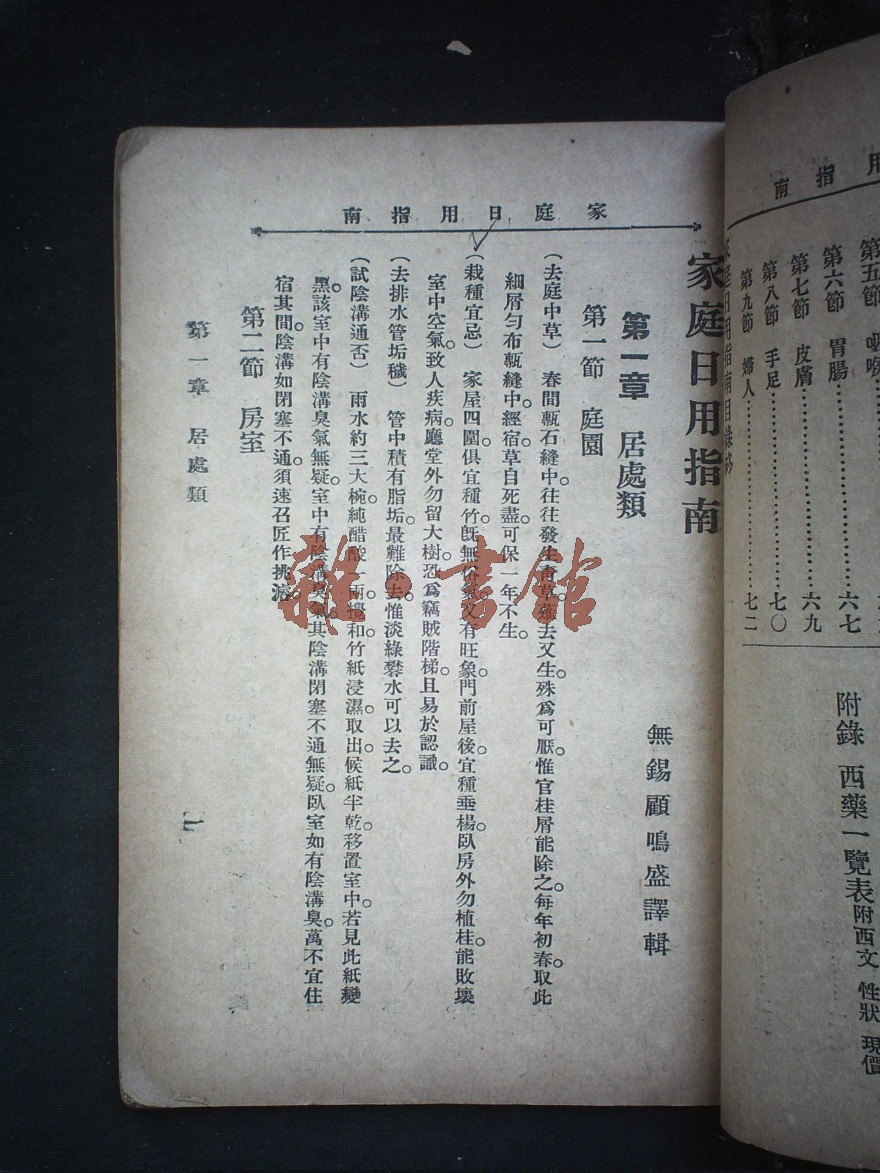 用指南
第五節 咽喉
第六節 胃腸 六七
第七節 皮膚 六九
第八節 手足 七〇
第九節 婦人 七二
家庭日用指南目錄終
附錄 西藥一覽表 附西文 性狀 現價
家庭日用指南
家庭日用指南
無錫顧鳴盛譯輯
第一章 居處類
第一節 庭園
(去庭中草) 春間甎石縫中。往往發生青草。薙去又生。殊爲可厭。惟官桂屑能除之。每年初春。取此
細屑勻布甎縫中。經宿草自死盡。可保一年不生。
(栽種宜忌) 家屋四圍俱宜種竹。旣無俗氣。又有旺象。門前屋後宜種垂楊。臥房外勿植桂。能敗壞
室中空氣。致人疾病。廳堂外勿留大樹。恐爲竊賊階梯。且易於認識。
(去排水管垢穢) 管中積有脂垢。最難除去。惟淡綠礬水可以去之。
(試陰溝通否) 雨水約三大椀。純醋酸一兩。攪和。竹紙浸濕。取出。候紙半乾。移置室中。若見此紙變
黑。該室中有陰溝臭氣無疑。室中有陰溝臭氣。其陰溝閉塞不通無疑。臥室如有陰溝臭。萬不宜住
宿其間。陰溝如閉塞不通。須速召匠作挑濬。
第二節 房室
第一章 居處類
一
雜·書館